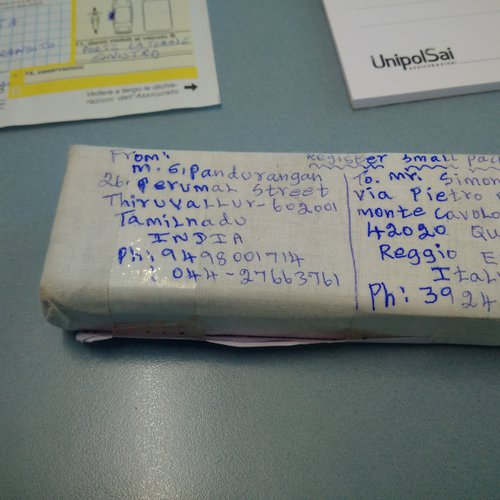 11. danni visibili al veicolo B
PARTE LATERALE
SINISTRA
14. osservazioni
Vedere a tergo le dichia-
razioni dell'Assicurato
UnipolSai
ASSICURAZIONI
Register Small
From:
M. G. Pandurangan
26, Perumal Street
Thiruvallur-602001
Tamilnadu
INDIA
Ph: 9498001714
044-27663761
To. Mr. Simon
via Pietro
monte Cavolo
42020 Qu
Reggio E
Ital
Ph: 39 24